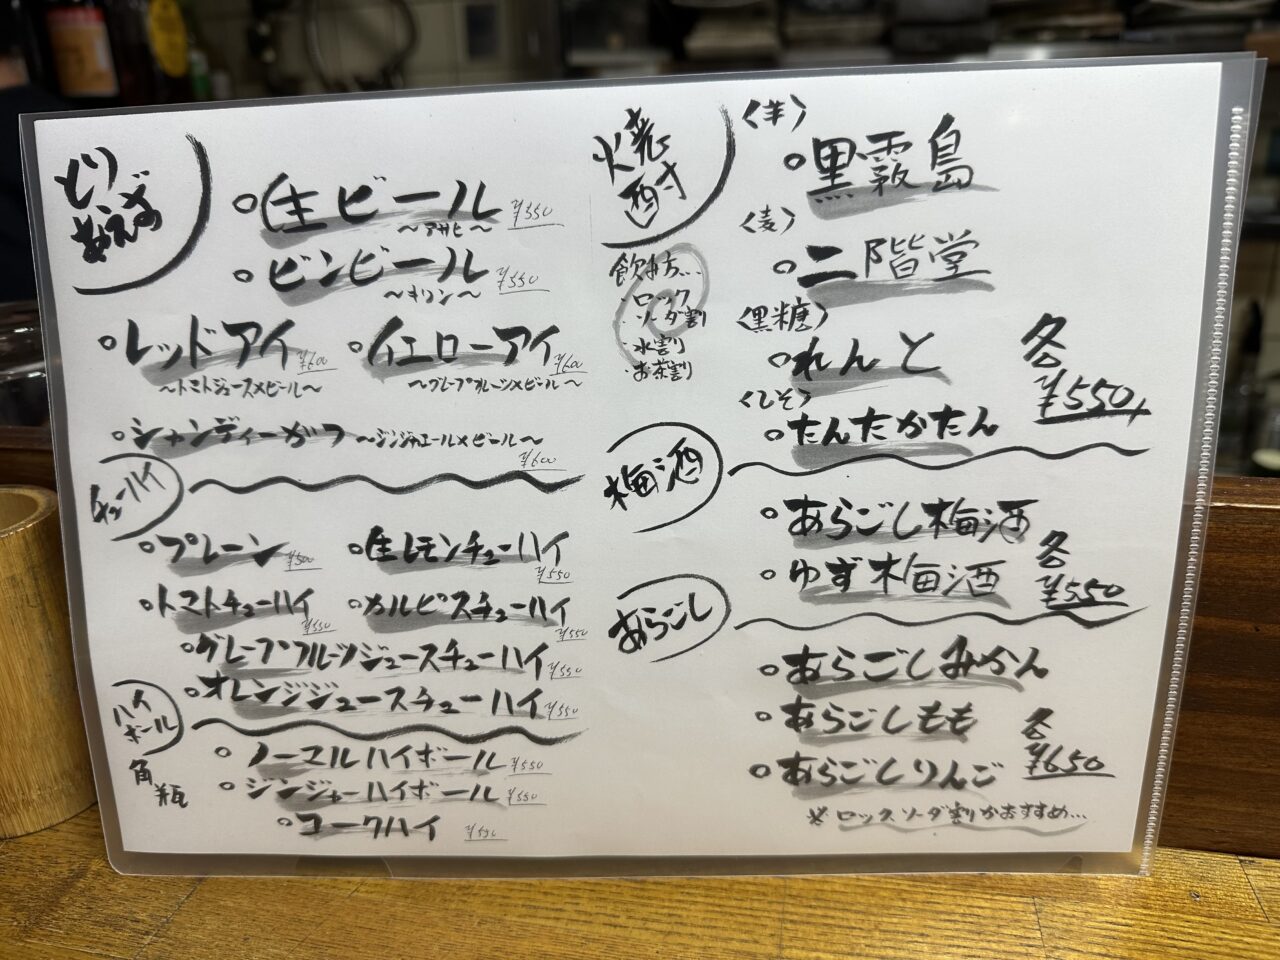 とりあえずの
○生ビール ¥550
〜アサヒ〜
○ビンビール ¥550
〜キリン〜
○レッドアイ ¥600
〜トマトジュース×ビール〜
○イエローアイ ¥600
〜グレープフルーツ×ビール〜
○シャンディーガフ 〜ジンジャエール×ビール〜
¥600
チューハイ
○プレーン ¥500
○生レモンチューハイ ¥550
○トマトチューハイ ¥550
○カルピスチューハイ ¥550
○グレープフルーツジュースチューハイ ¥550
○オレンジジュースチューハイ ¥550
ハイボール
角瓶
○ノーマルハイボール ¥550
○ジンジャーハイボール ¥550
○コークハイ ¥550
焼酎
飲み方...
・ロック
・ソーダ割り
・水割り
・お茶割り
〈芋〉
○黒霧島
〈麦〉
○二階堂
〈黒糖〉
○れんと
〈しそ〉
○たんたかたん
各¥550
梅酒
○あらごし梅酒
○ゆず梅酒
各¥550
あらごし
○あらごしみかん
○あらごしもも
○あらごしりんご
各¥650
※ロック、ソーダ割りがおすすめ...